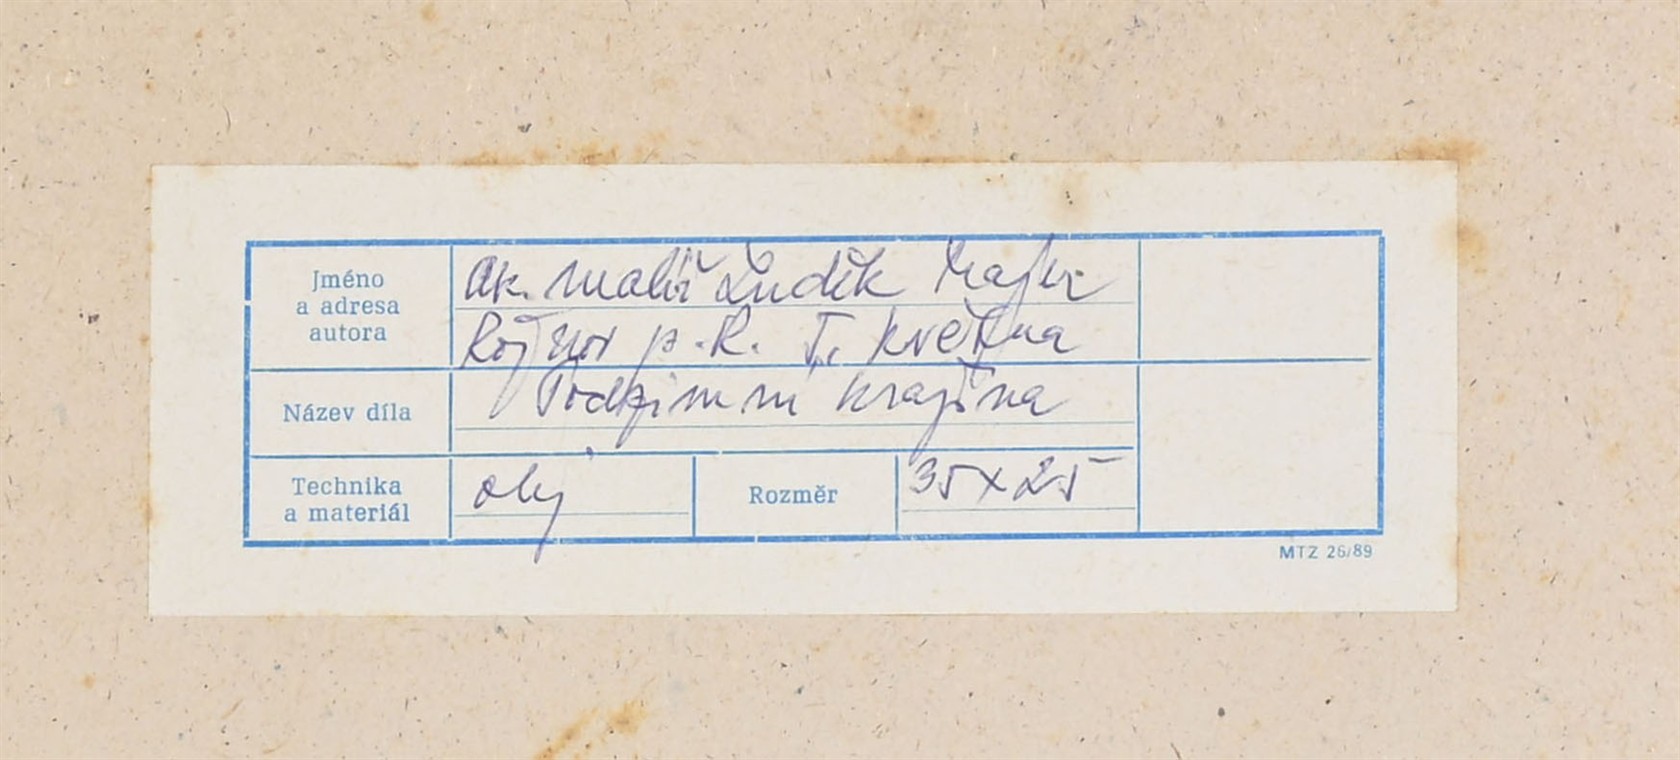 Jméno
a adresa
autora
Ak. malíř Luděk
p. R. 5. května
Název díla
Podzimní krajina
Technika
a materiál
olej
Rozměr
35 x 25
MTZ 26/89